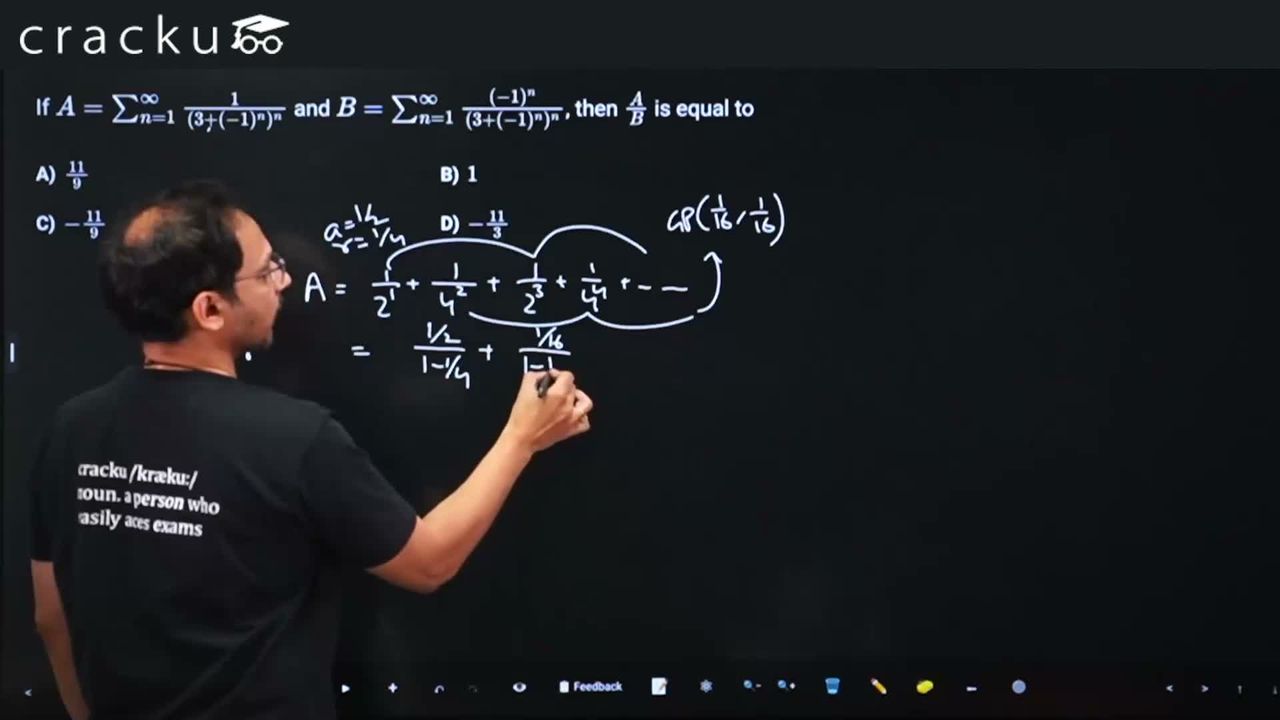 cracku
If A = ∑_{n=1}^{∞} 1/(3+(-1)^n)^n and B = ∑_{n=1}^{∞} (-1)^n/(3+(-1)^n)^n, then A/B is equal to
A) 11/9 B) 1
C) -11/9 D) -11/3
a = 1/2
r = 1/4
GP(1/16, 1/16)
A = 1/2^1 + 1/4^2 + 1/2^3 + 1/4^4 + - -
= (1/2)/(1-1/4) + (1/16)/(1-1
cracku /kræku:/
noun. a person who
easily aces exams
Feedback